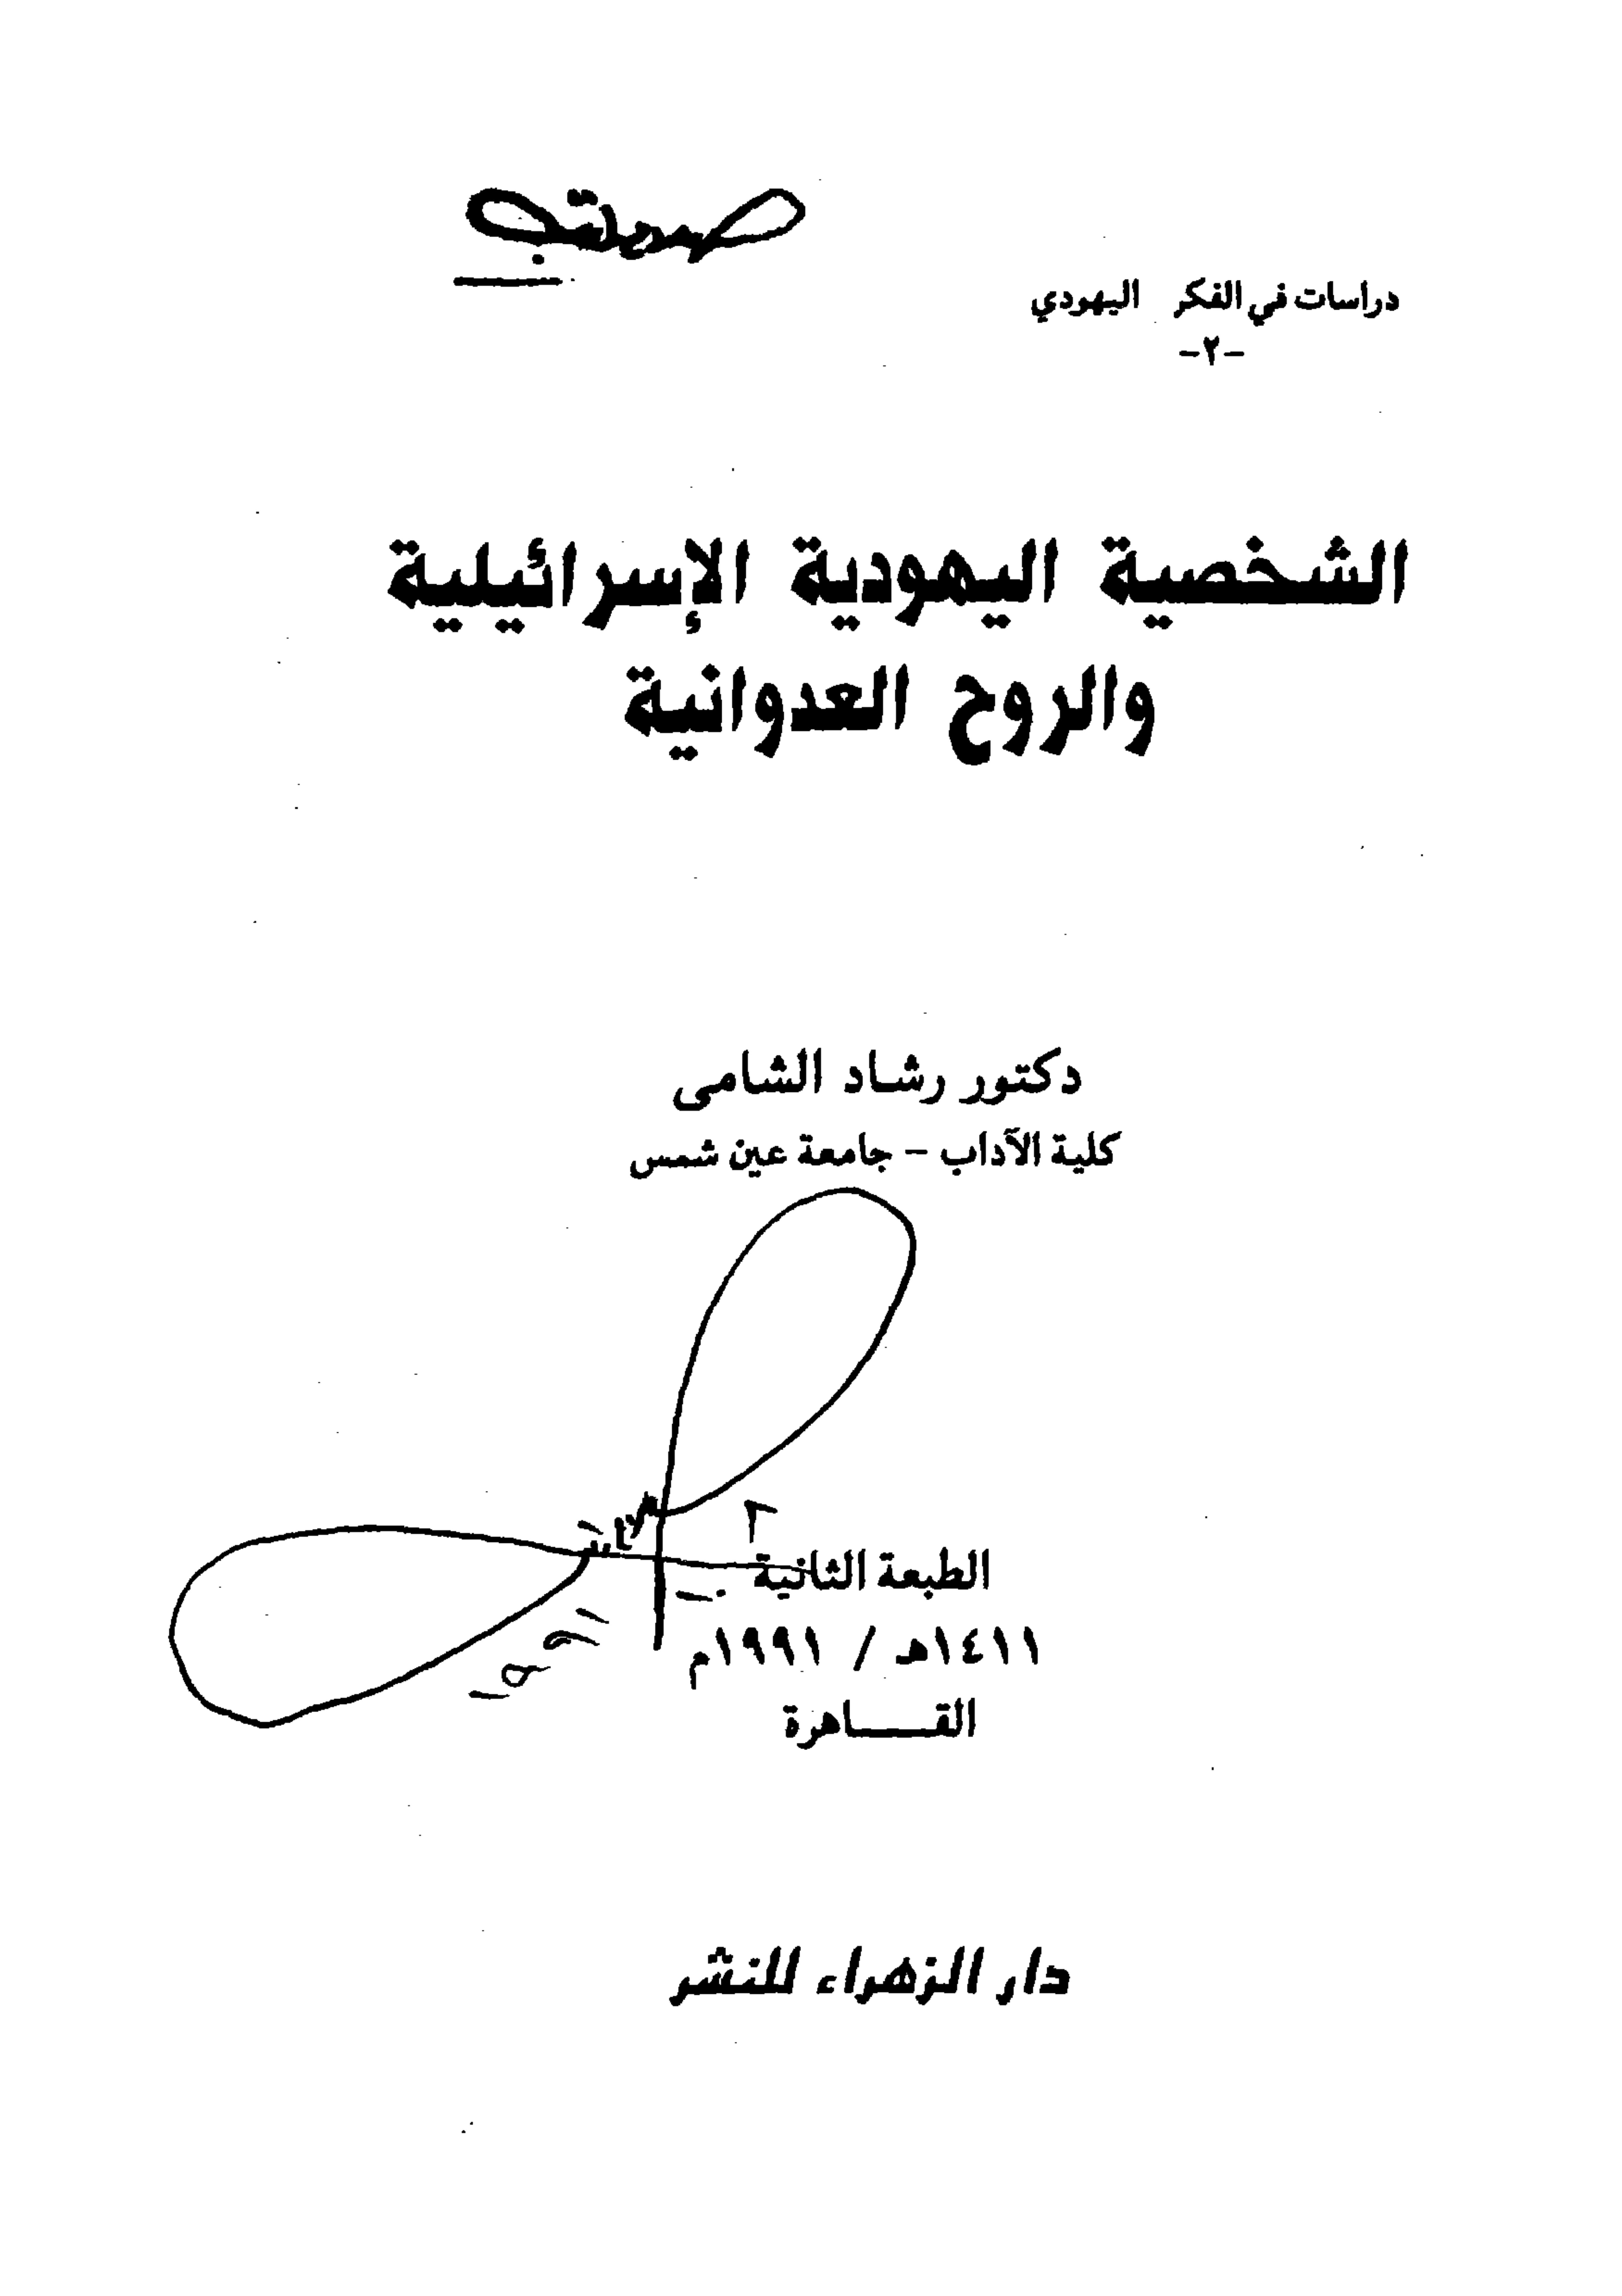 دراسات في الفكر اليهودي
-٢-
الشخصية اليهودية الإسرائيلية
والروح العدوانية
دكتور رشاد الشامى
كلية الآداب – جامعة عين شمس
الطبعة الثانية
١٤١١هـ / ١٩٩١م
القـــاهرة
دار الزهراء للنشر